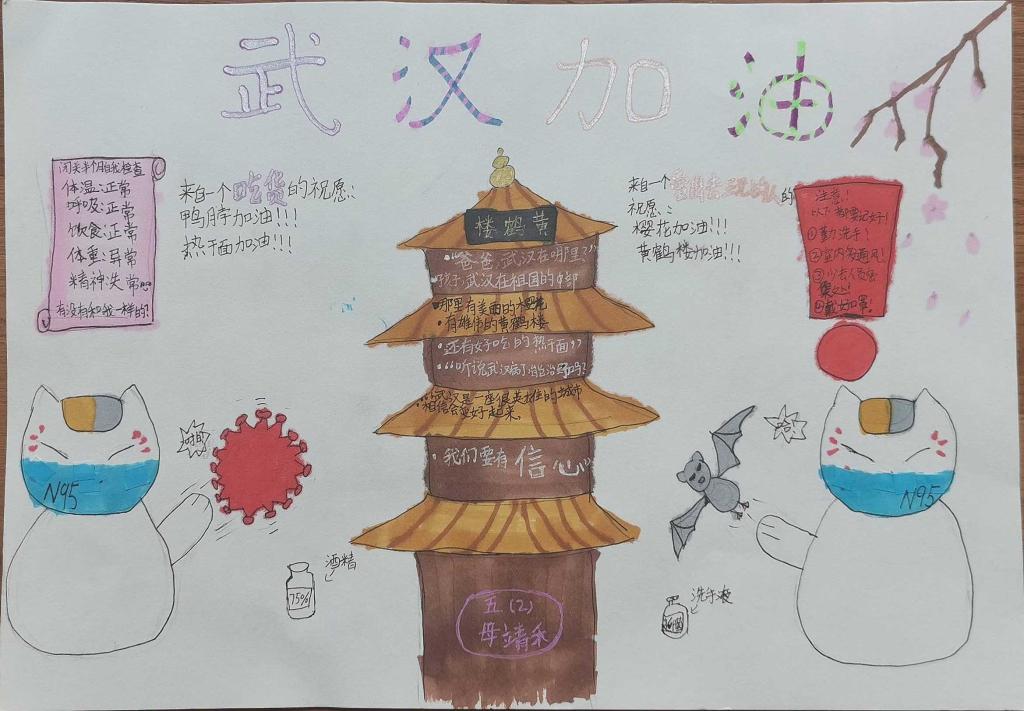 武汉加油
闭关半个月自我检查
体温:正常
呼吸:正常
饮食:正常
体重:异常
精神失常...
有没有和我一样的!
来自一个吃货的祝愿:
鸭脖加油!!!
热干面加油!!!
黄鹤楼
“爸爸,武汉在哪里?”
“孩子,武汉在祖国的中部
哪里有美丽的樱花
有雄伟的黄鹤楼
还有好吃的热干面”
武汉是一座很英雄的城市
相信会变好起来。
我们要有信心”
五(2)
来自一个
的
祝愿:
樱花加油!!!
黄鹤楼加油!!!
注意!
以下都要记好!
①勤洗手!
②室内多通风!
③少去人员密
④戴好口罩!
N95
N95
酒精
75%
洗手液